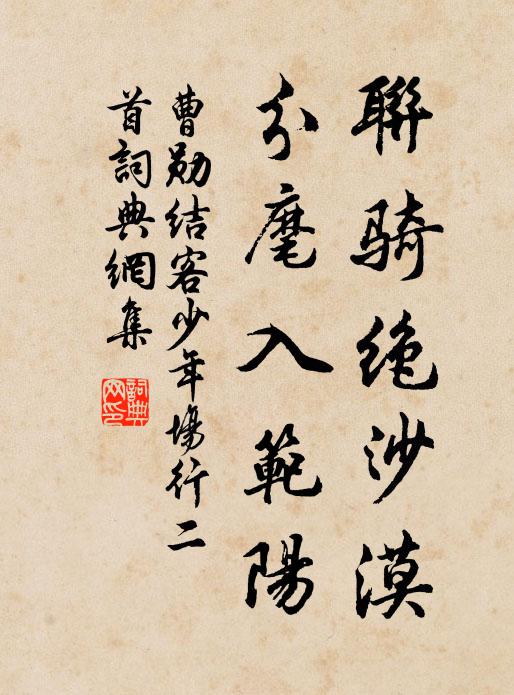 聯騎絶沙漠
分麾入範陽
曹勛結客少年場行二
首詞典網集
詞典网印